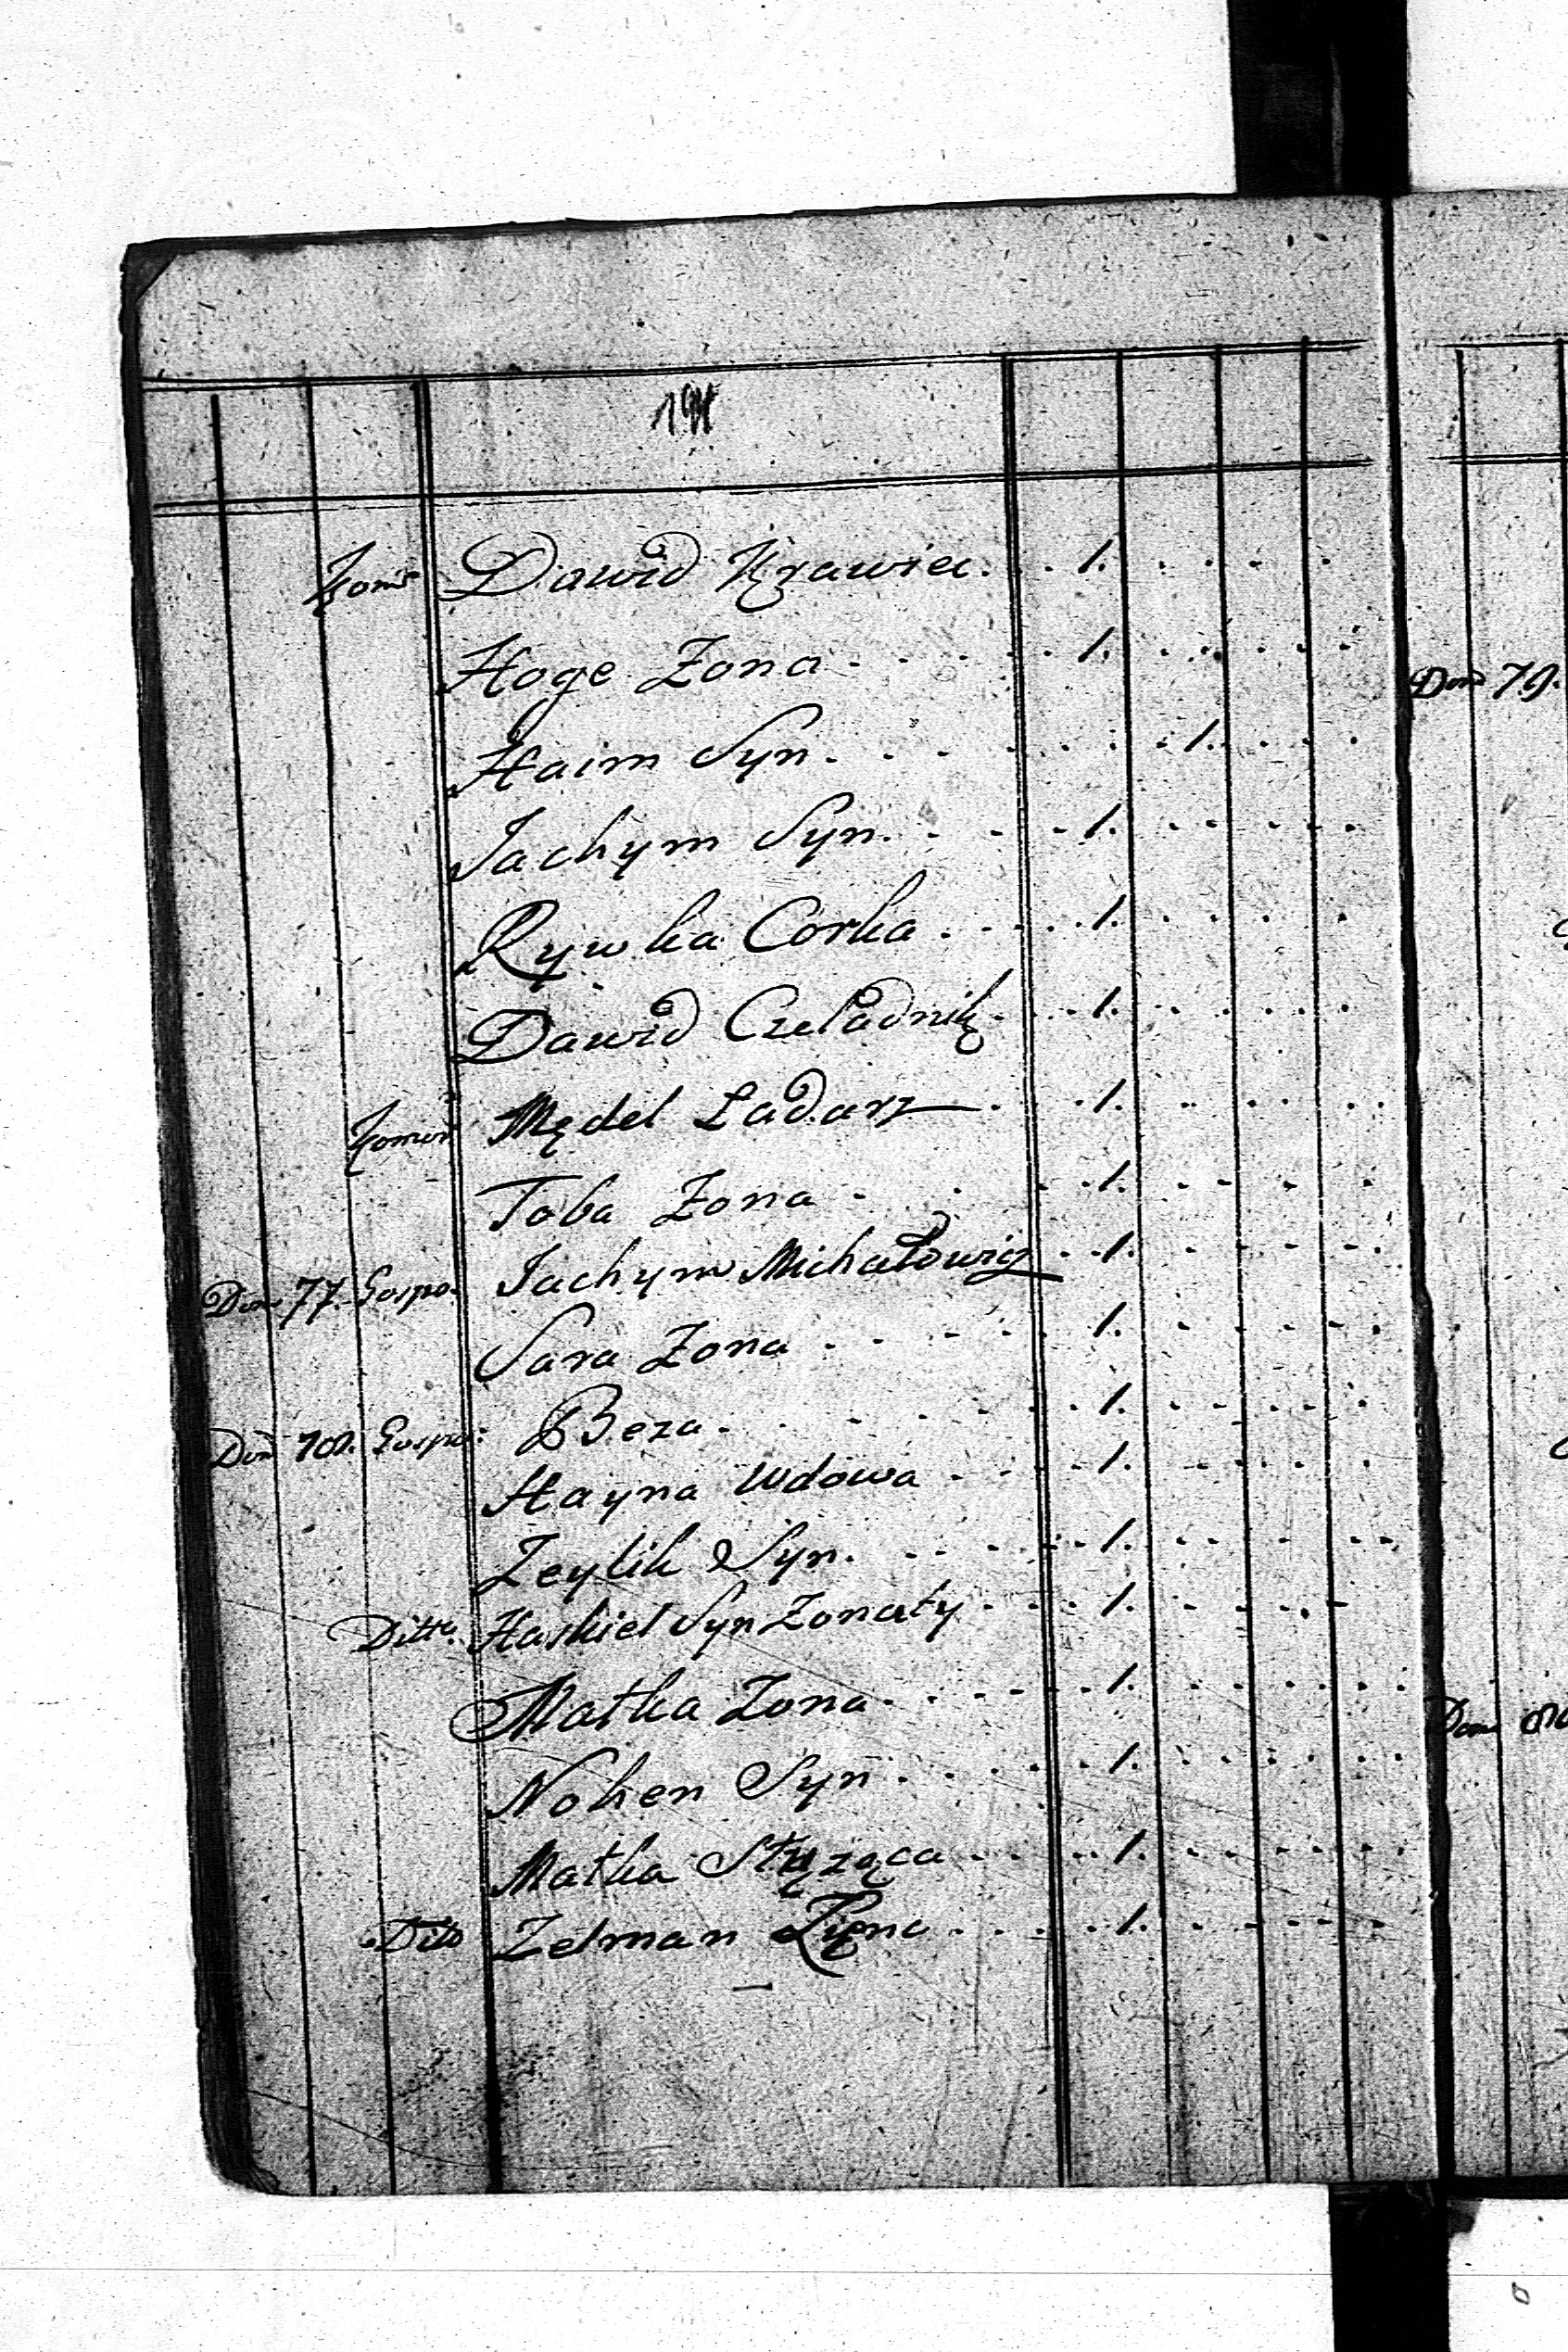 Kom: Dawid Krawiec . . 1. . . . .
Hoge Zona . . . . 1. . . . .
Haim Syn . . . . . 1. . . .
Jachym Syn . . . 1. . . . .
Rywka Corka . . . . 1. . . . .
Dawid Czeladnik . . 1. . . . .
Komor Mędel Ladarz . . 1. . . . .
Toba Zona . . . 1. . . . .
Dom 77. Gospo. Jachym Michałowicz . . 1. . . . .
Sara Zona . . . . 1. . . . .
Dom Gospo: Beza . . . . 1. . . . .
Hayna Wdowa . . . 1. . . . .
Zeylik Syn . . . . 1. . . . .
Ditto. Haskiel Syn Zonaty . . 1. . . . .
Matka Zona . . . . 1. . . . .
Nohen Syn . . . . 1. . . . .
Matka Służąca . . . 1. . . . .
Ditto Zelman . . . 1. . . . .
Dom 79.
Dom